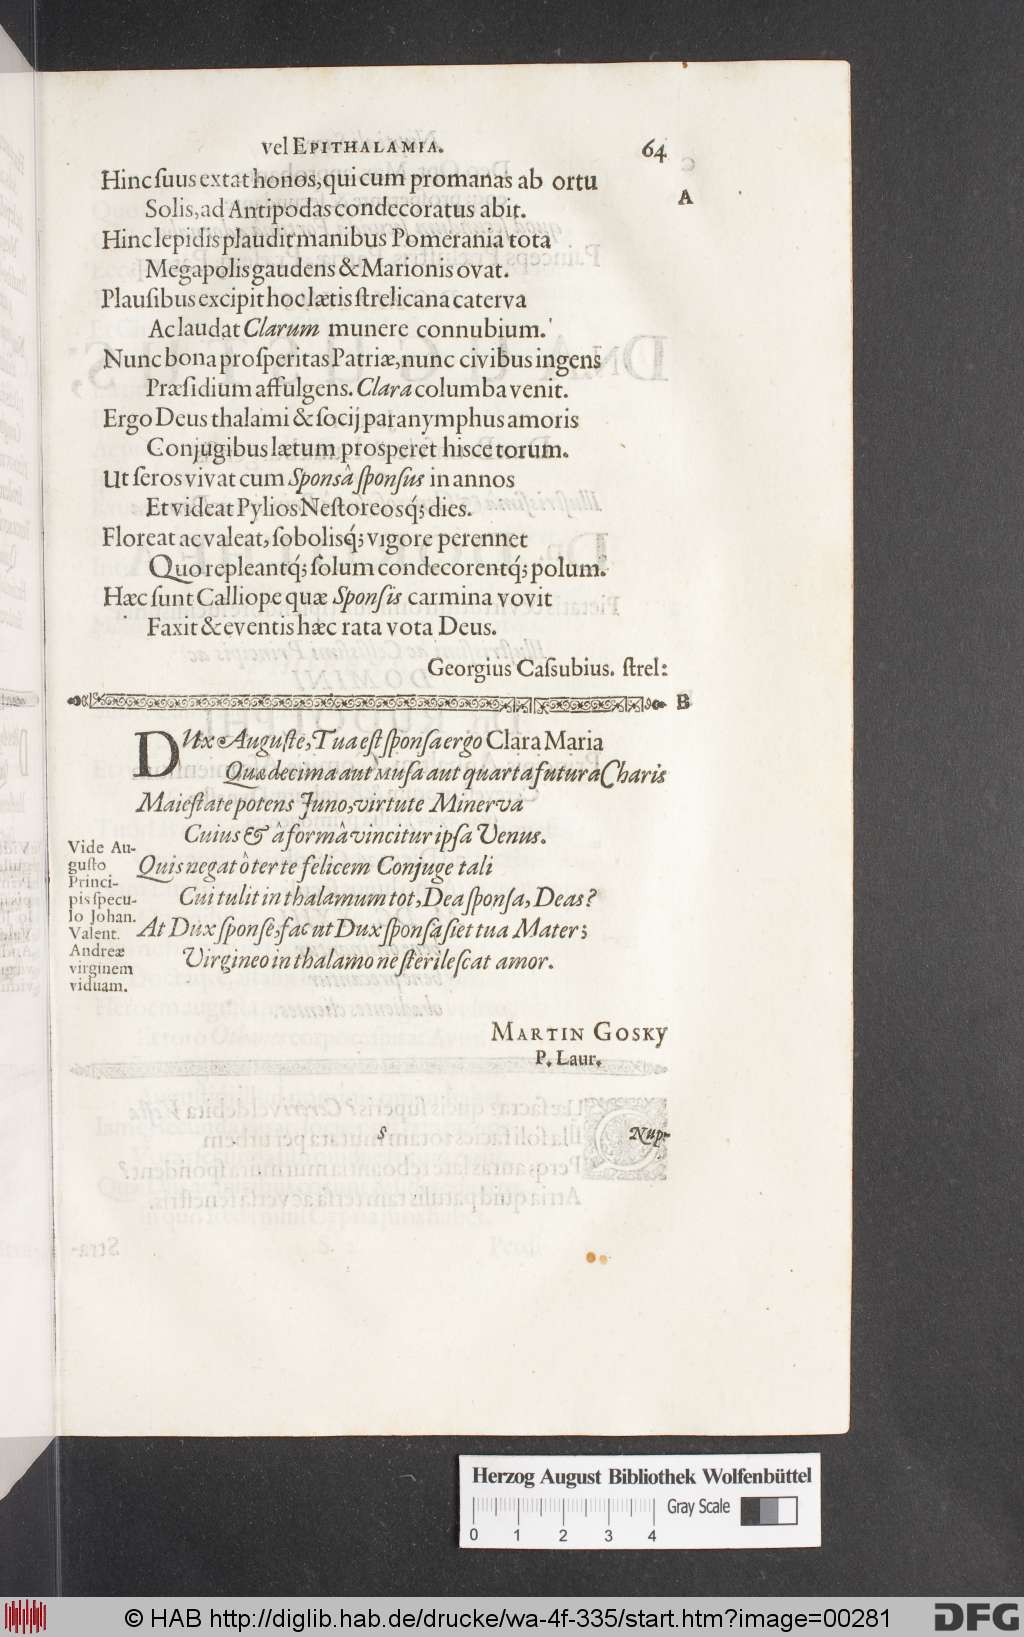 vel EPITHALAMIA. 64
Hinc ſuus extat honos, qui cum promanas ab ortu
A
Solis, ad Antipodas condecoratus abit.
Hinc lepidis plaudit manibus Pomerania tota
Megapolis gaudens & Marionis ovat.
Plauſibus excipit hoc lætis ſtrelicana caterva
Ac laudat Clarum munere connubium.
Nunc bona proſperitas Patriæ, nunc civibus ingens
Præſidium affulgens. Clara columba venit.
Ergo Deus thalami & ſocij paranymphus amoris
Conjugibus lætum proſperet hisce torum.
Ut ſeros vivat cum Sponsâ ſponſus in annos
Et videat Pylios Neſtoreosq́; dies.
Floreat ac valeat, ſobolisq́; vigore perennet
Quo repleantq́; ſolum condecorentq́; polum.
Hæc ſunt Calliope quæ Sponſis carmina vovit
Faxit & eventis hæc rata vota Deus.
Georgius Caſsubius. ſtrel:
B
DUx Auguſte, Tua eſt ſponſa ergo Clara Maria
Quæ decima aut Muſa aut quarta futura Charis
Maieſtate potens Juno, virtute Minerva
Cuius & â formâ vincitur ipſa Venus.
Quis negat ô ter te felicem Conjuge tali
Cui tulit in thalamum tot, Dea ſponſa, Deas?
At Dux ſponſe, fac ut Dux ſponſa ſiet tua Mater;
Virgineo in thalamo ne ſterileſcat amor.
Vide Au-
guſto
Princi-
pis ſpecu-
lo Johan.
Valent.
Andreæ
virginem
viduam.
MARTIN GOSKY
P. Laur.
S
Nup-
Herzog August Bibliothek Wolfenbüttel
Gray Scale
0 1 2 3 4
© HAB http://diglib.hab.de/drucke/wa-4f-335/start.htm?image=00281
DFG